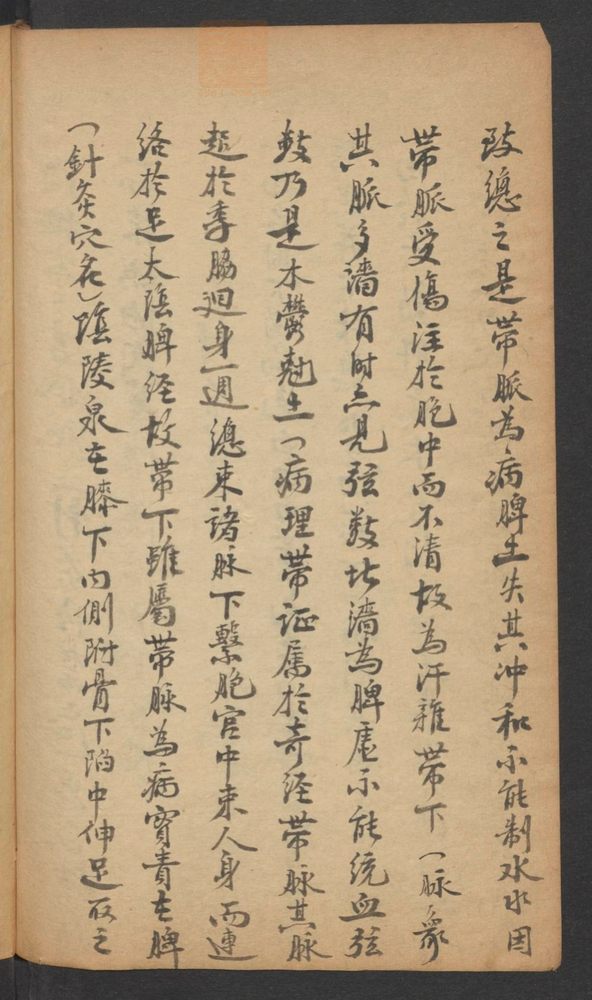 致總之是帶脈為病脾土失其冲和不能制水水因
帶脈受傷注於胞中而不清故為汗雜帶下(脈象
其脈多濇有时亦見弦数此濇為脾虛不能統血弦
数乃是木鬱尅土(病理帶证属於奇经帶脉其脉
起於季脇迴身一週總束諸脉下繫胞宫中束人身而連
络於足太陰脾经故帶下雖屬帶脉為病實責在脾
(針灸穴名)陰陵泉在膝下内側附骨下陷中伸足取之